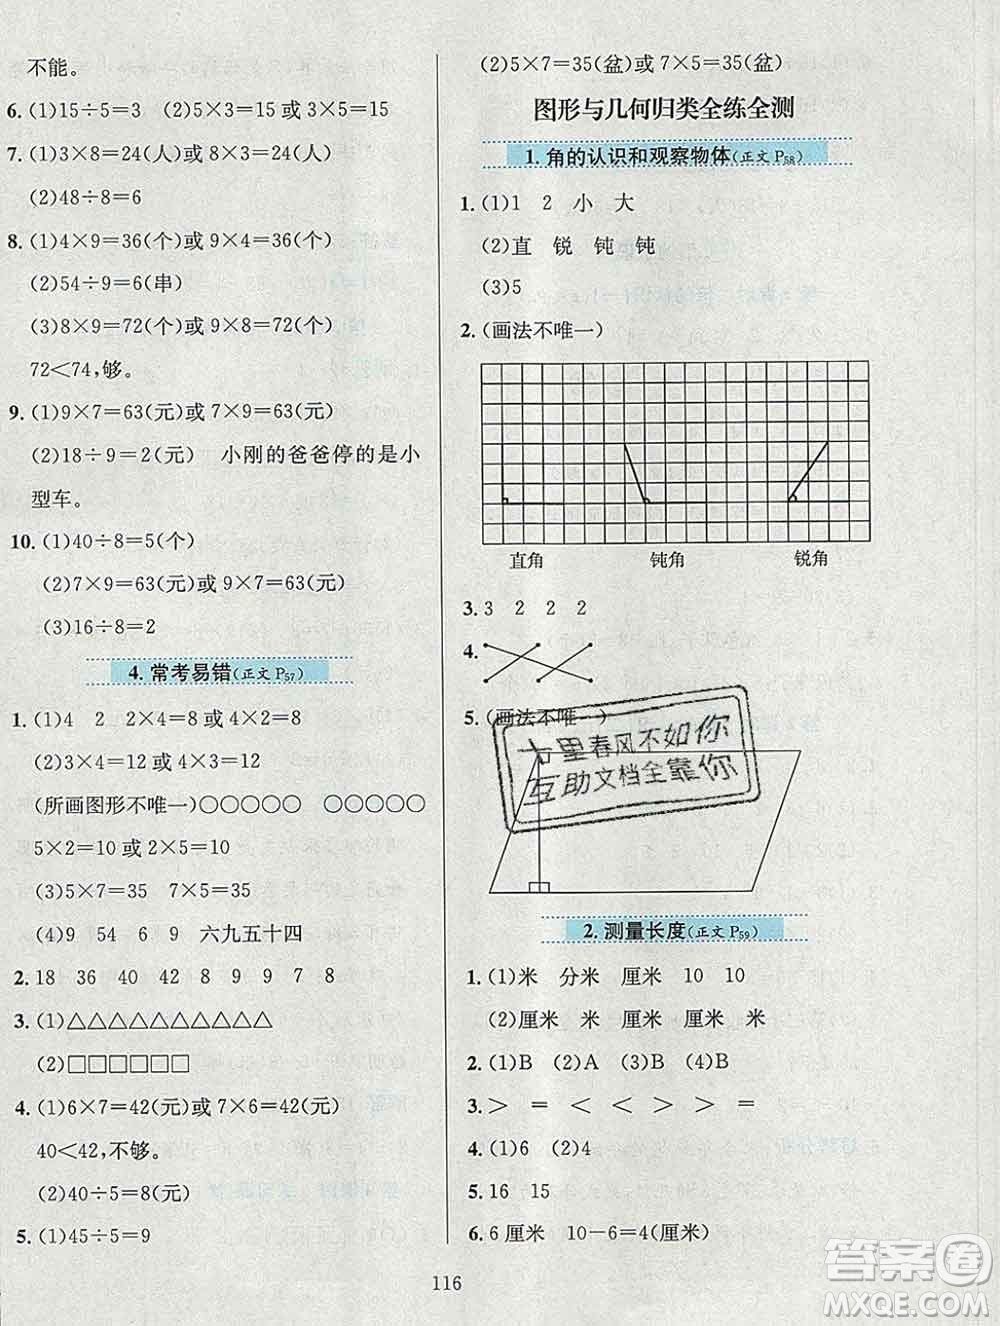 不能。
6. (1)15÷5=3 (2)5×3=15 或 3×5=15
7. (1)3×8=24(人)或 8×3=24(人)
(2)48÷8=6
8. (1)4×9=36(个)或 9×4=36(个)
(2)54÷9=6(串)
(3)8×9=72(个)或 9×8=72(个)
72<74,够。
9. (1)9×7=63(元)或 7×9=63(元)
(2)18÷9=2(元) 小刚的爸爸停的是小
型车。
10. (1)40÷8=5(个)
(2)7×9=63(元)或 9×7=63(元)
(3)16÷8=2
4. 常考易错(正文 P57)
1. (1)4 2 2×4=8 或 4×2=8
(2)3×4=12 或 4×3=12
(所画图形不唯一)○○○○○ ○○○○○
5×2=10 或 2×5=10
(3)5×7=35 7×5=35
(4)9 54 6 9 六九五十四
2. 18 36 40 42 8 9 9 7 8
3. (1)△△△△△△△△△△
(2)□□□□□□
4. (1)6×7=42(元)或 7×6=42(元)
40<42,不够。
(2)40÷5=8(元)
5. (1)45÷5=9
(2)5×7=35(盆)或 7×5=35(盆)
图形与几何归类全练全测
1. 角的认识和观察物体(正文 P58)
1. (1)1 2 小 大
(2)直 锐 钝 钝
(3)5
2. (画法不唯一)
直角 钝角 锐角
3. 3 2 2 2
4.
5. (画法不唯一)
十里春风不如你
互助文档全靠你
2. 测量长度(正文 P59)
1. (1)米 分米 厘米 10 10
(2)厘米 米 厘米 厘米 米
2. (1)B (2)A (3)B (4)B
3. > = < < > =
4. (1)6 (2)4
5. 16 15
6. 6 厘米 10-6=4(厘米)
116
答案圈
MXQE.COM